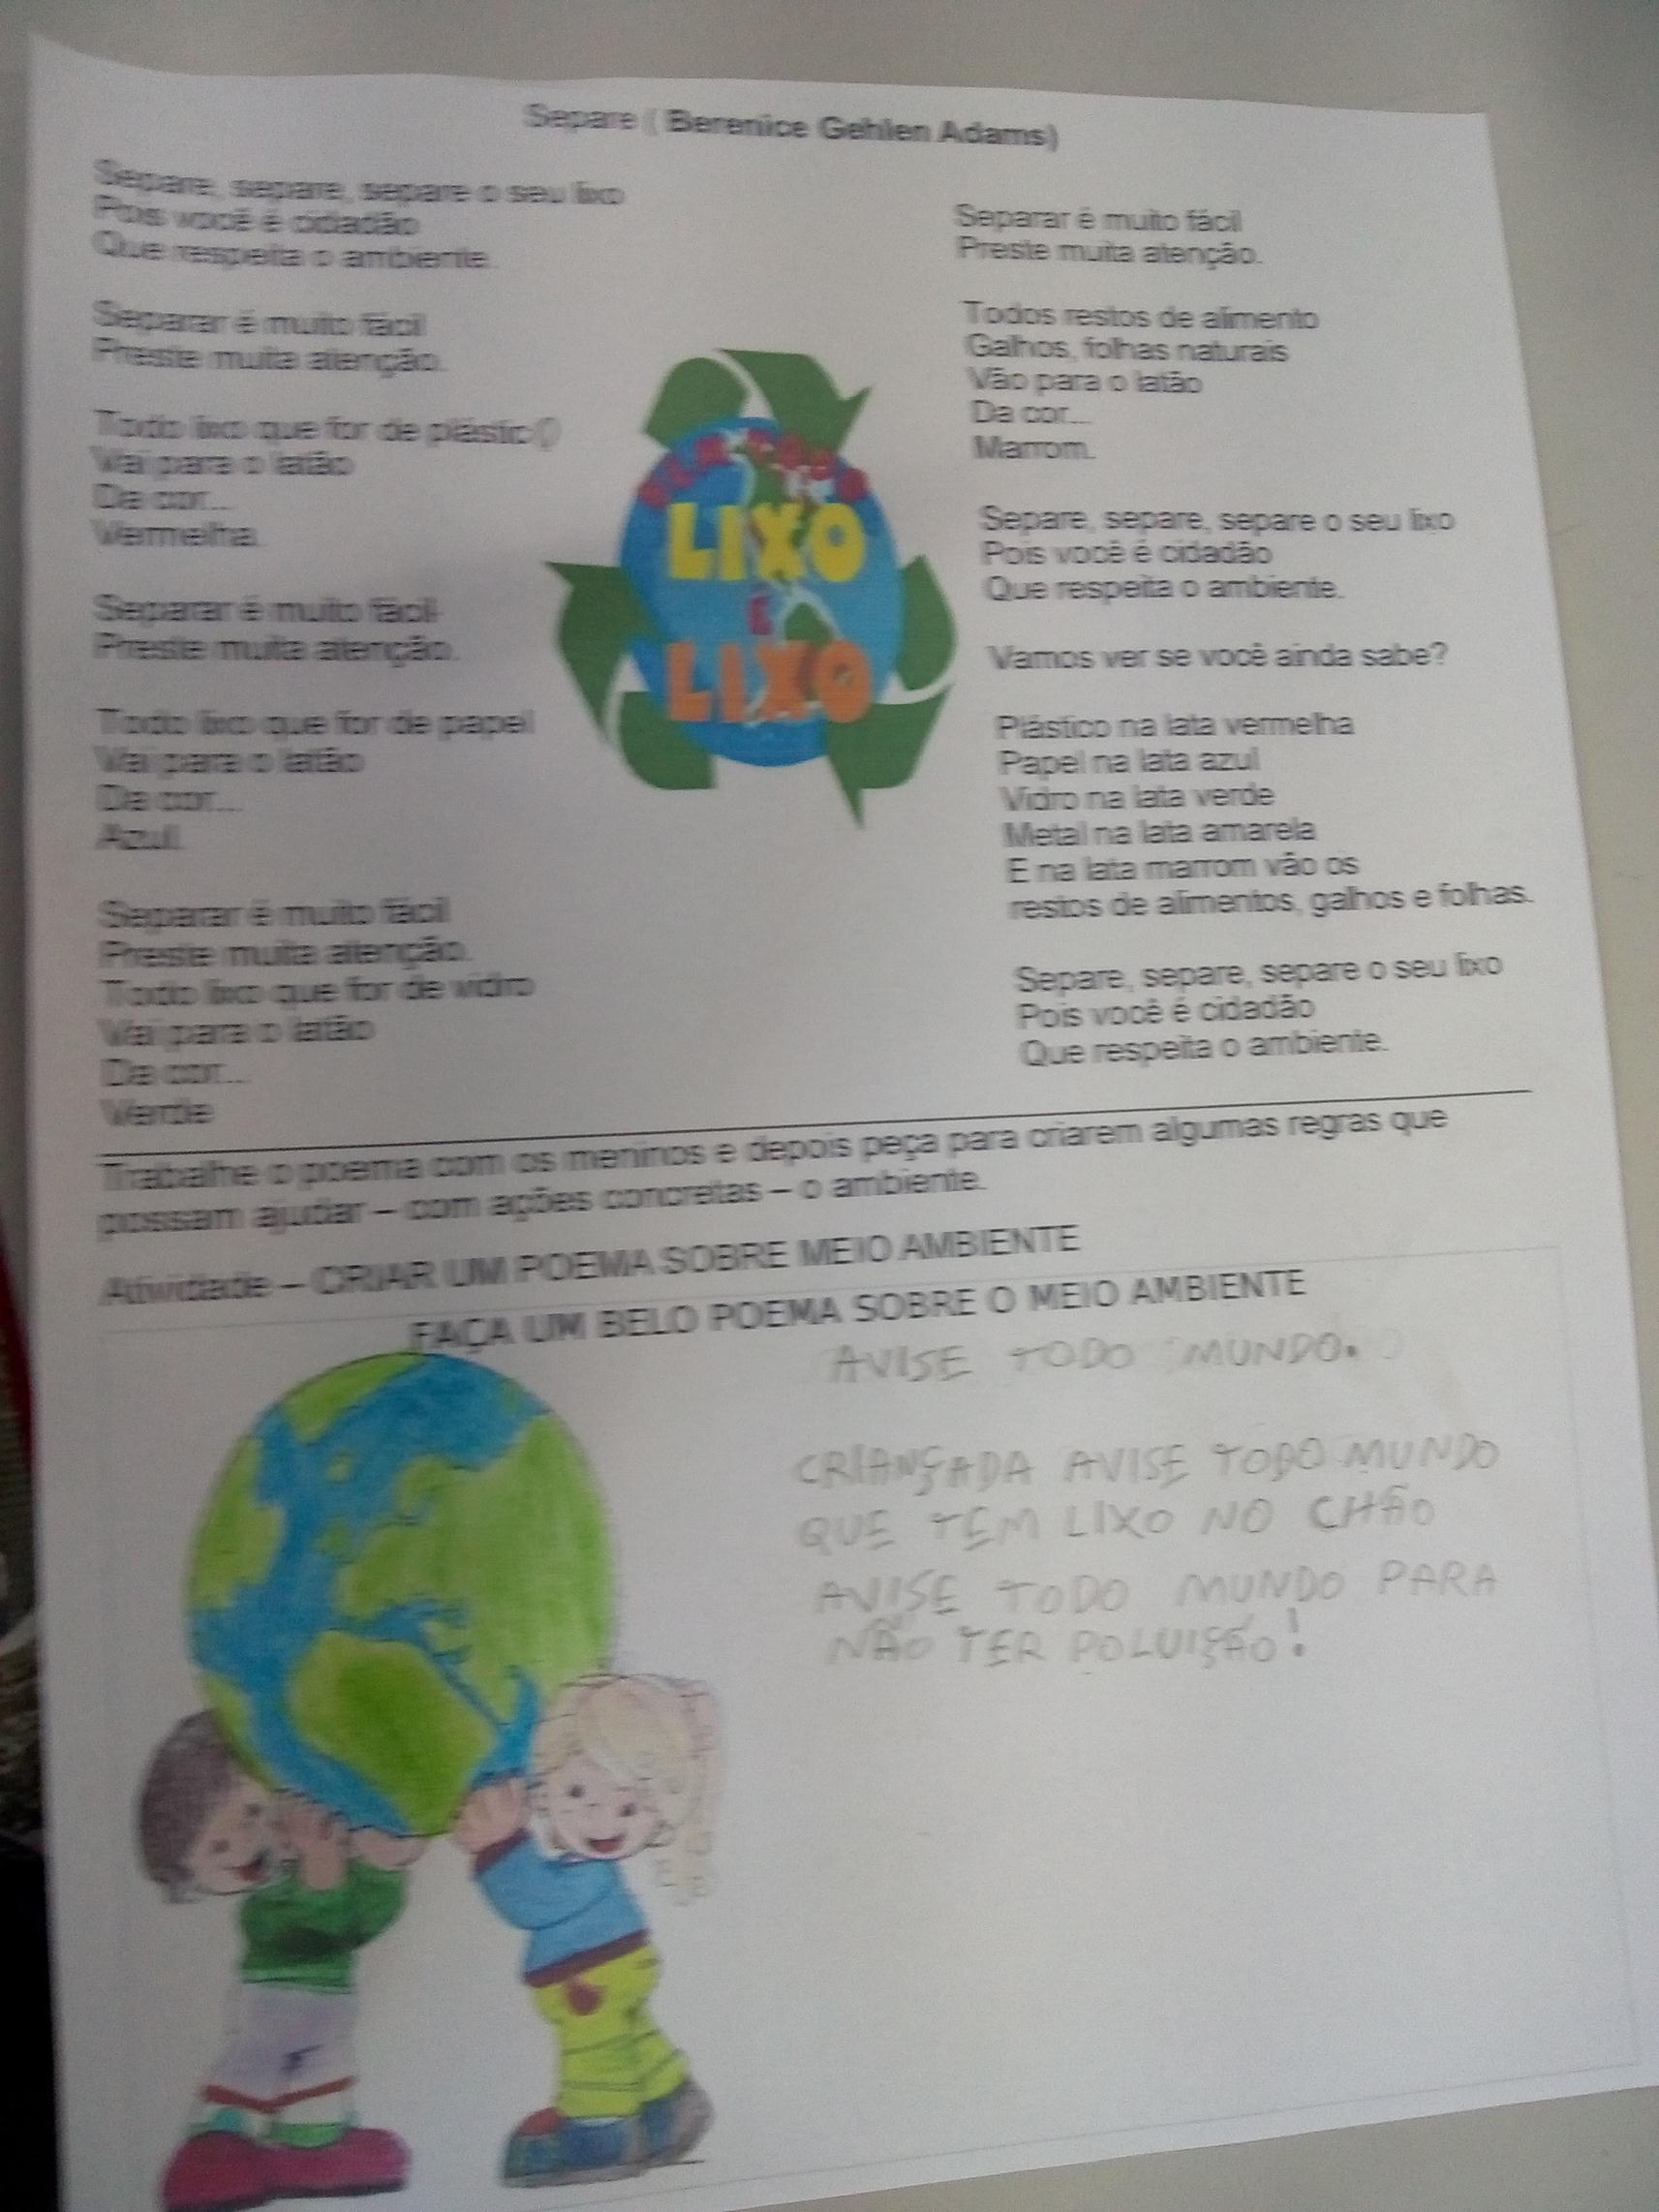 Separe ( Berenice Gehlen Adams)
Separe, separe, separe o seu lixo
Pois você é cidadão
Que respeita o ambiente.
Separar é muito fácil
Preste muita atenção.
Todo lixo que for de plástic()
Vai para o latão
Da cor...
Vermelha.
Separar é muito fácil
Preste muita atenção.
Todo lixo que for de papel
Vai para o latão
Da cor...
Azul.
Separar é muito fácil
Preste muita atenção.
Todo lixo que for de vidro
Vai para o latão
Da cor...
Verde
LIXO
É
LIXO
Separar é muito fácil
Preste muita atenção.
Todos restos de alimento
Galhos, folhas naturais
Vão para o latão
Da cor...
Marrom.
Separe, separe, separe o seu lixo
Pois você é cidadão
Que respeita o ambiente.
Vamos ver se você ainda sabe?
Plástico na lata vermelha
Papel na lata azul
Vidro na lata verde
Metal na lata amarela
E na lata marrom vão os
restos de alimentos, galhos e folhas.
Separe, separe, separe o seu lixo
Pois você é cidadão
Que respeita o ambiente.
Trabalhe o poema com os meninos e depois peça para criarem algumas regras que
possam ajudar – com ações concretas – o ambiente.
Atividade – CRIAR UM POEMA SOBRE MEIO AMBIENTE
FAÇA UM BELO POEMA SOBRE O MEIO AMBIENTE
AVISE TODO MUNDO.
CRIANÇADA AVISE TODO MUNDO
QUE TEM LIXO NO CHÃO
AVISE TODO MUNDO PARA
NÃO TER POLUIÇÃO!